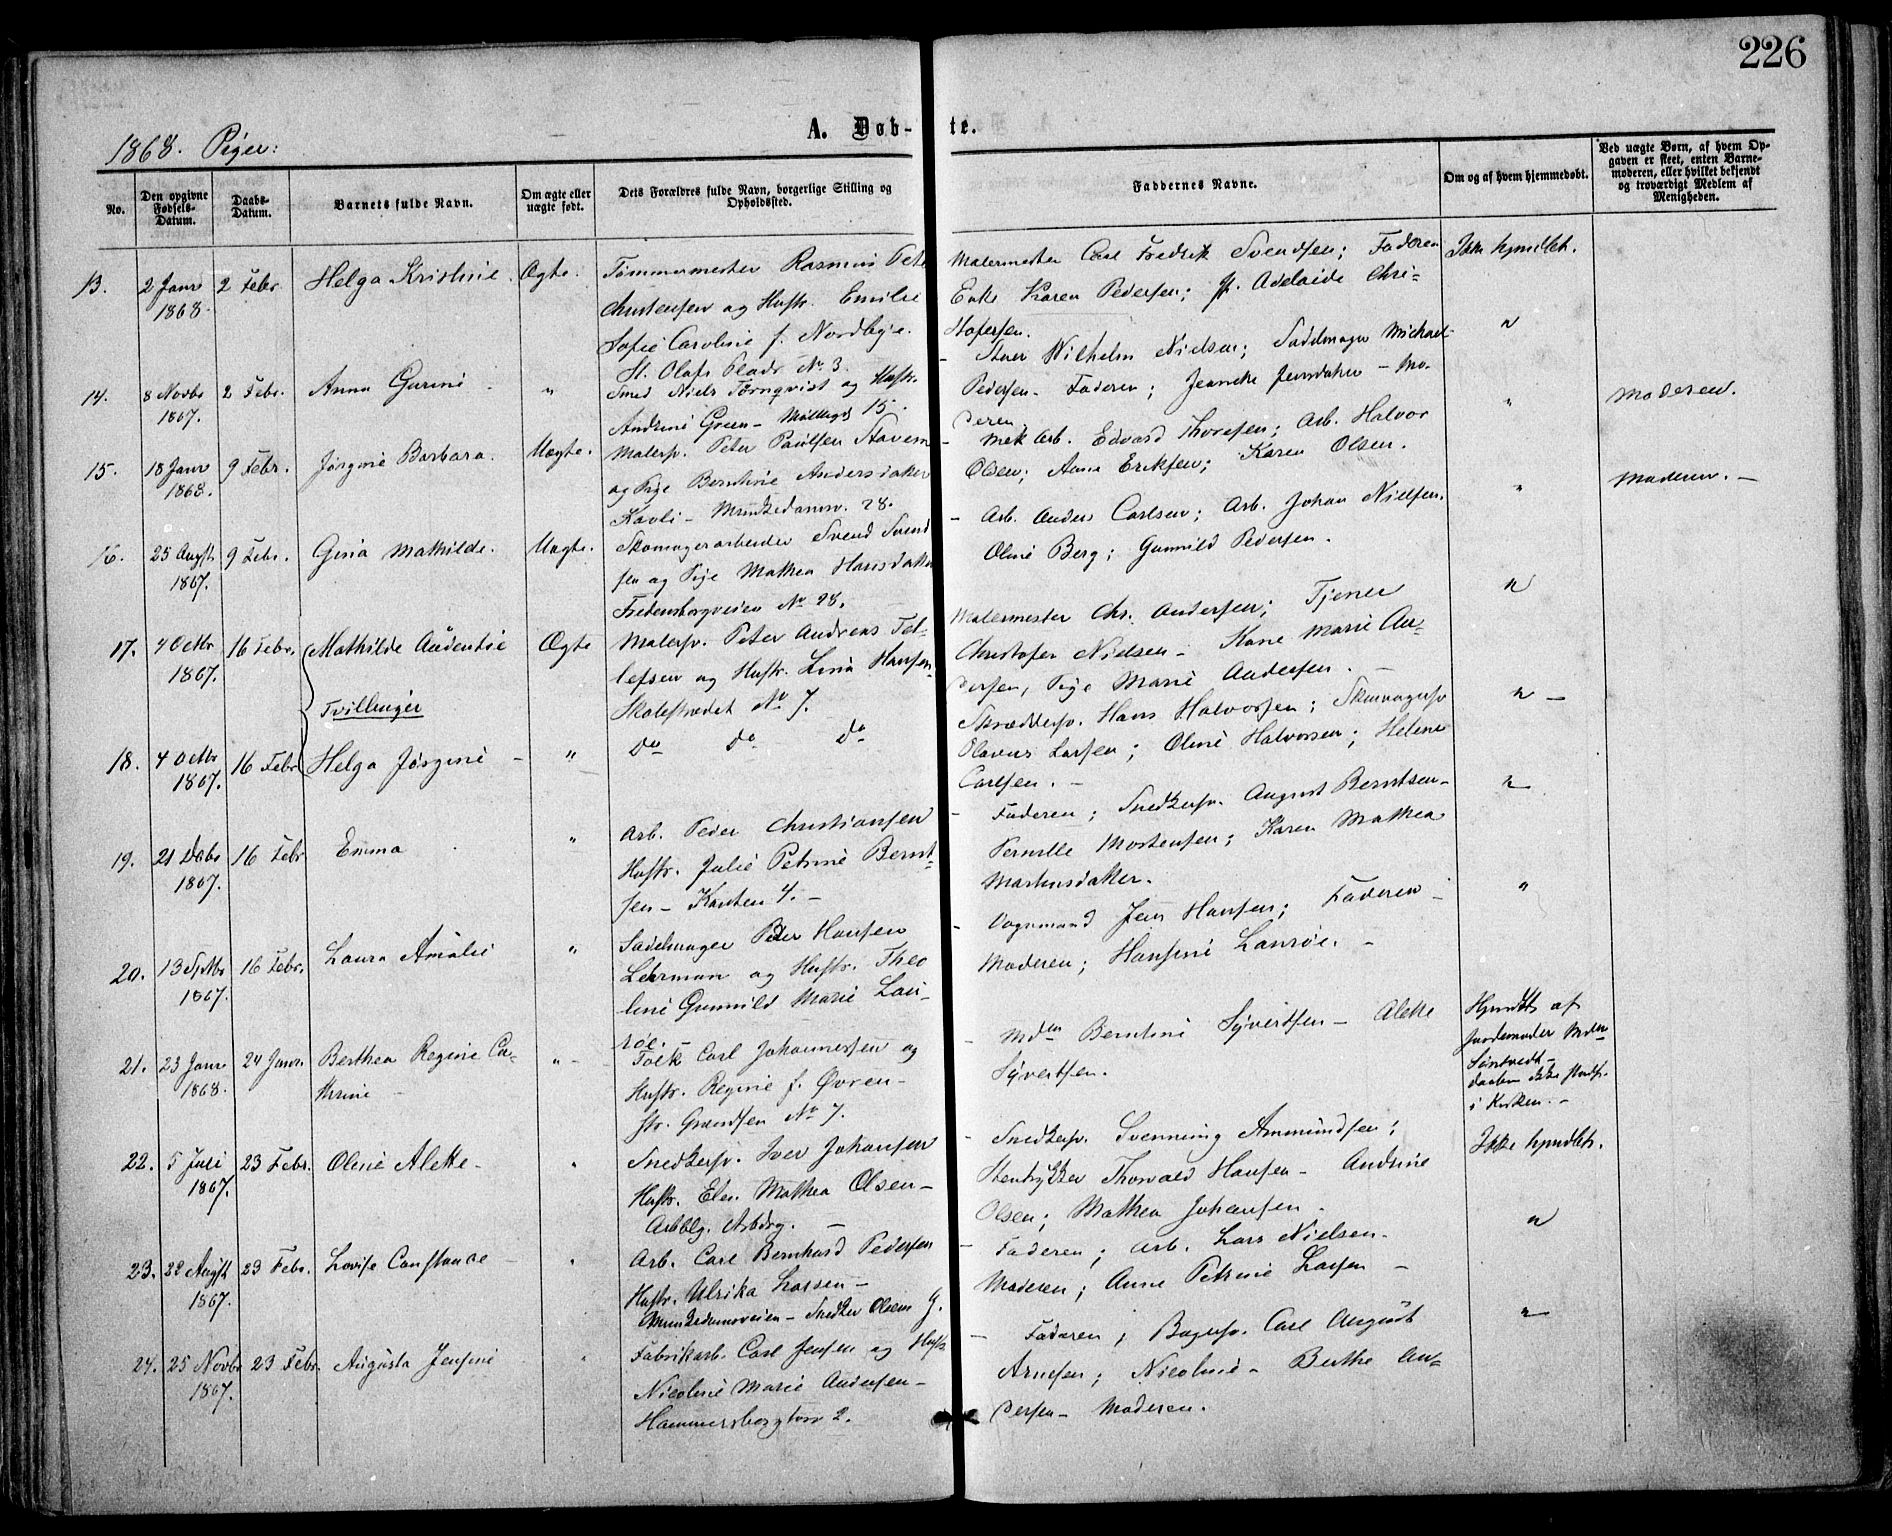 226
A. Døb-te.
1868. Piger:
No.
Den opgivne Fødsels-Datum.
Daabs-Datum.
Barnets fulde Navn.
Om ægte eller uægte født.
Dets Forældres fulde Navn, borgerlige Stilling og Opholdssted.
Faddernes Navne.
Om og af hvem hjemmedøbt.
Ved uægte Børn, af hvem Opgaven er skeet, enten Barnemoderen, eller hvilket bekjendt og troværdigt Medlem af Menigheden.
13. 2 Janr 1868. 2 Febr. Helga Kristine. Ægte.
Tømmermester Rasmus Pete
Christensen og Hustr. Emilie
Sofie Caroline f. Nordbye.
St. Olafs Plads No 3.
Malermester Carl Fredrik Svendsen; Faderen
Enke Karen Pedersen; Adelaide Chri-
stofersen.
Ikke hjmdbt.
14. 8 Novbr 1867. 2 Febr. Anna Gurine - "
Smed Niels Törnqvist og Hustr.
Andrine Green - Møllegd 15.
- Stuer Wilhelm Nielsen; Sadelmager Michael
Pedersen - Faderen; Jensdatter - Mo-
deren.
"
Moderen.
15. 18 Janr 1868. 9 Febr. Jørgine Barbara. Uægte.
Malersv. Peter Paulsen Stavem
og Pige Berntine Andersdatter
Kavli - Munkedamsv. 28.
- Mek Arb. Edvard Thoresen; Arb. Halvor
Olsen; Anna Eriksen; Karen Olsen.
"
Moderen. -
16. 25 Augst 1867. 9 Febr. Gina Mathilde. Uægte.
Skomagerarbeider Svend Svend
sen og Pige Mathea Hansdatter
Fredensborgveien No 28.
- Arb. Anders Carlsen; Arb. Johan Nielsen.
Oline Berg; Gunnild Pedersen.
"
17. 4 Octbr 1867. 16 Febr. Mathilde Audentie Ægte
Tvillinger
Malersv. Peter Andreas Tel-
lefsen og Hustr. Lina Hansen
Skolestrædet No 7.
Malermester Chr. Andersen; Tjener
Christofer Nielsen - Kare Marie An-
dersen, Pige Marie Andersen. -
"
18. 4 Octbr 1867. 16 Febr Helga Jørgine - "
do do do
Skrædersv. Hans Halvorsen; Skomagersv
Olavus Larsen; Oline Halvorsen; Helene
Carlsen. -
" -
19. 21 Decbr 1867. 16 Febr Emma "
Arb. Peder Christiansen
Hustr. Julie Petrine Bernt-
sen - Kanten 4. -
- Faderen; Snedkersv. August Berntsen -
Pernille Mortensen; Karen Mathea
Martinsdatter.
"
20. 13 Sptbr 1867. 16 Febr. Laura Amalie "
Sadelmager Peder Hansen
Lehrman og Hustr. Theo
line Gunnild Marie Lau-
røe. -
- Vognmand Jens Hansen; Faderen -
Moderen; Hansine Laurøe. -
"
21. 23 Janr 1868. 24 Janr. Berthea Regine Ca-
thrine - " -
Tolk Carl Johannessen og
Hustr. Regine f. Øvren -
No 7.
- Mdm Berntine Syvertsen - Alette
Syvertsen.
Hjmdbt af
Jordemoder Mdm
daaben ikke stadf.
i Kirken. -
22. 5 Juli 1867. 23 Febr. Oline Alette - "
Snedkersv. Iver Johansen
Hustr. Elen Mathea Olsen -
Arbblg. Arbdrg. -
- Snedkersv. Svenning Ammundsen;
Stentrykker Thorvald Hansen - Andrine
Olsen; Mathea Johansen.
Ikke hjmdbt.
23. 22 Augst 1867. 23 Febr. Lovise Constance - "
Arb. Carl Bernhard Pedersen
Hustr. Ulrika Larsen -
Munkedamsveien - Snedker Olsens G.
- Faderen; Arb. Lars Nielsen -
Moderen; Anne Petrine Larsen -
"
24. 25 Novbr 1867. 23 Febr. Augusta Jensine "
Fabrikarb. Carl Jensen og Hustr
Nicoline Marie Andersen -
Hammersborgtorv 2.
- Faderen; Bagersv. Carl August
Arnesen; Nicoline - Berthe An-
dersen - Moderen.
"